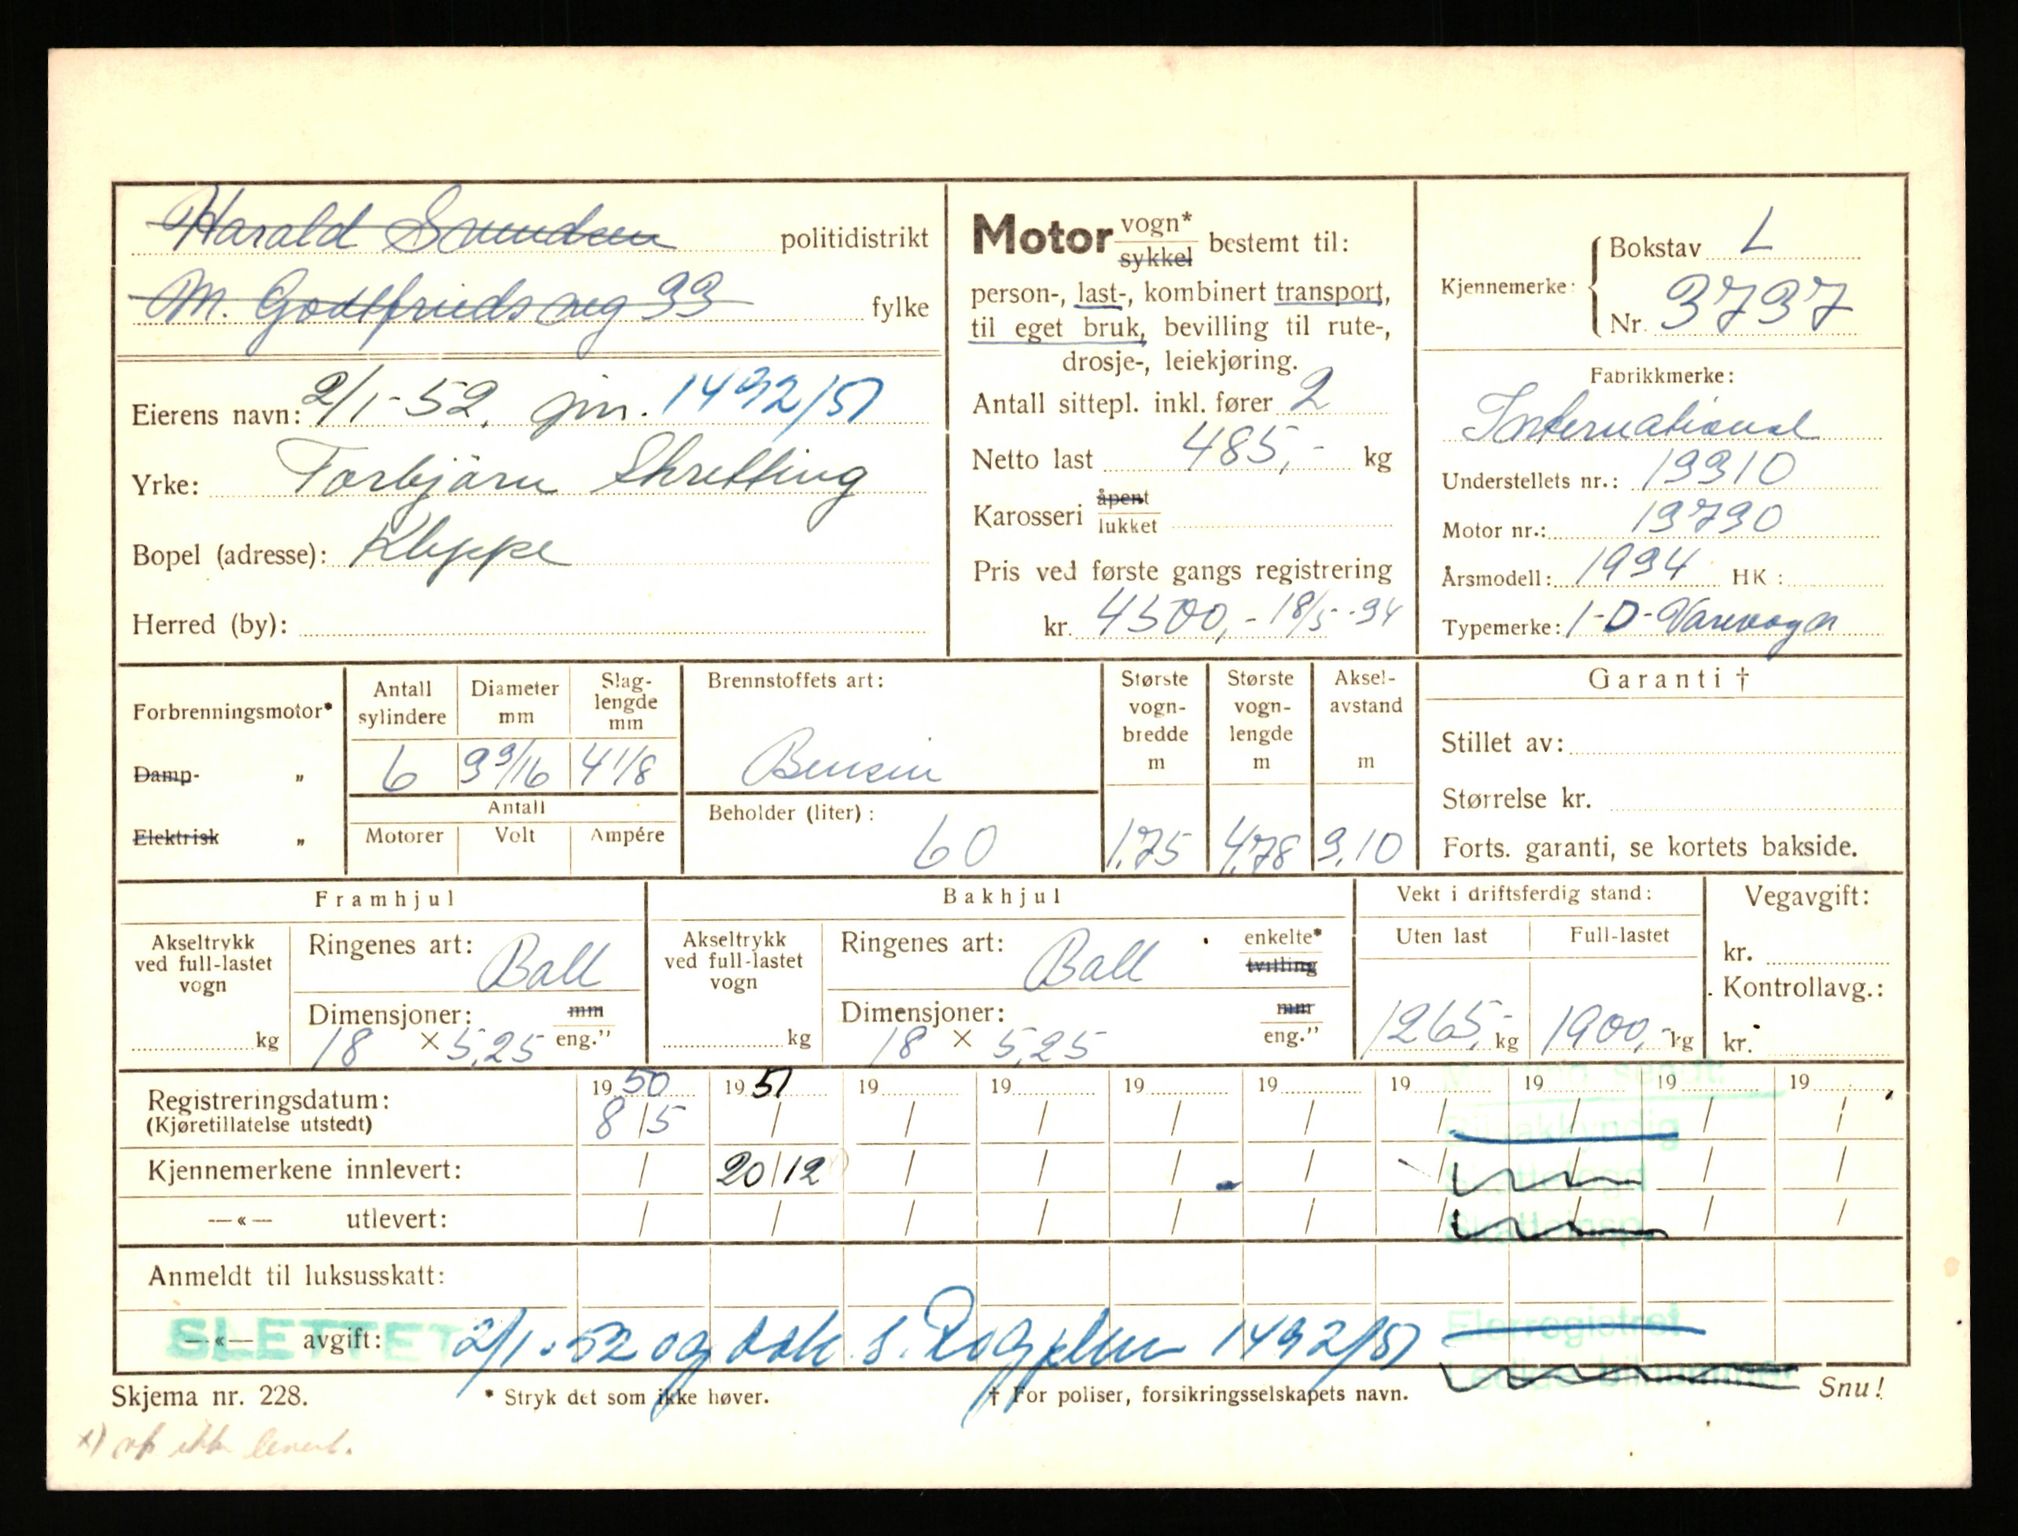 Harald Svendsen politidistrikt
M. Godtfriedsveg 33 fylke
Eierens navn: 2/1-52. jnr. 1492/51
Yrke: Torbjörn Skretting
Bopel (adresse): Kleppe
Herred (by):
Motor vogn* sykkel bestemt til:
person-, last-, kombinert transport,
til eget bruk, bevilling til rute-,
drosje-, leiekjøring.
Antall sittepl. inkl. fører 2
Netto last 485,- kg
Karosseri åpent lukket
Pris ved første gangs registrering
kr. 4500,- 18/5-34
Kjennemerke: Bokstav L
Nr. 3737
Fabrikkmerke:
International
Understellets nr.: 13310
Motor nr.: 13730
Årsmodell: 1934 HK:
Typemerke: 1-D-Varevogn
Forbrenningsmotor*
Damp- „
Elektrisk „
Antall sylindere 6
Diameter mm 3 3/16
Slaglengde mm 4 1/8
Antall
Motorer Volt Ampére
Brennstoffets art:
Bensin
Beholder (liter):
60
Største vognbredde m 1,75
Største vognlengde m 4,78
Akselavstand m 3,10
Garanti †
Stillet av:
Størrelse kr.
Forts. garanti, se kortets bakside.
Framhjul
Akseltrykk ved full-lastet vogn kg
Ringenes art: Ball
Dimensjoner: mm eng.”
18 × 5,25
Bakhjul
Akseltrykk ved full-lastet vogn kg
Ringenes art: Ball enkelte* tvilling
Dimensjoner: mm eng.”
18 × 5,25
Vekt i driftsferdig stand:
Uten last Full-lastet
1265,- kg 1900,- kg
Vegavgift:
kr.
Kontrollavg.:
kr.
19 50 19 51 19 19 19 19 19 19 19 19
Registreringsdatum: 8/5 / / / / / / / / /
(Kjøretillatelse utstedt)
Kjennemerkene innlevert: / 20/12 / / / / / / / /
—«— utlevert: / / / / / / / / / /
Anmeldt til luksusskatt:
SLETTET —«— avgift: 2/1-52 og dok. s. Rog 1492/51
Eierregistret
Skjema nr. 228. * Stryk det som ikke høver. † For poliser, forsikringsselskapets navn. Snu!
x) ikke levert.